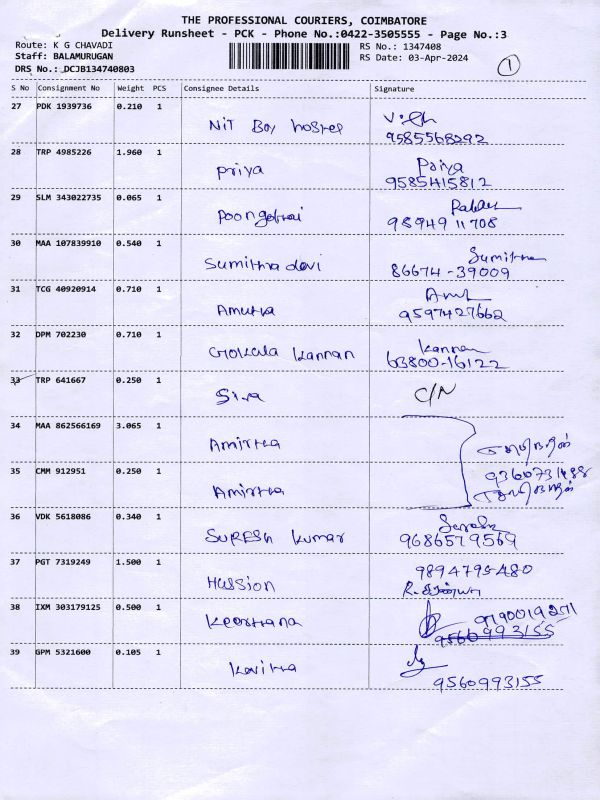 THE PROFESSIONAL COURIERS, COIMBATORE
Delivery Runsheet - PCK - Phone No.:0422-3505555 - Page No.:3
Route: K G CHAVADI
RS No.: 1347408
Staff: BALAMURUGAN
RS Date: 03-Apr-2024
DRS No.: DCJB134740803
1
S No Consignment No Weight PCS Consignee Details Signature
27 PDK 1939736 0.210 1
NIT Boy hostel
9585568292
28 TRP 4985226 1.960 1
Priya Priya
9585415812
29 SLM 343022735 0.065 1
98949 11708
30 MAA 107839910 0.540 1
Sumithra devi Sumithra
86674-39009
31 TCG 40920914 0.710 1
Amutha
9597427662
32 DPM 702230 0.710 1
Gokula Kannan Kannan
63800-16122
33 TRP 641667 0.250 1
Siva C/N
34 MAA 862566169 3.065 1
Amirtha
35 CMM 912951 0.250 1
Amirtha
36 VDK 5618086 0.340 1
SURESh Kumar Suresh
9686579569
37 PGT 7319249 1.500 1
Hussion 9894795480
38 IXM 303179125 0.500 1
Keerthana
9560993155
39 GPM 5321600 0.105 1
Kavitha
9560993155